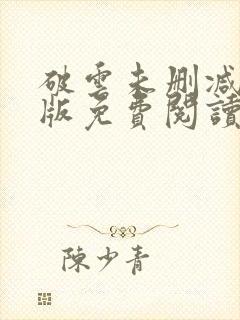 破雲未刪減
版免費閱讀
陳少青